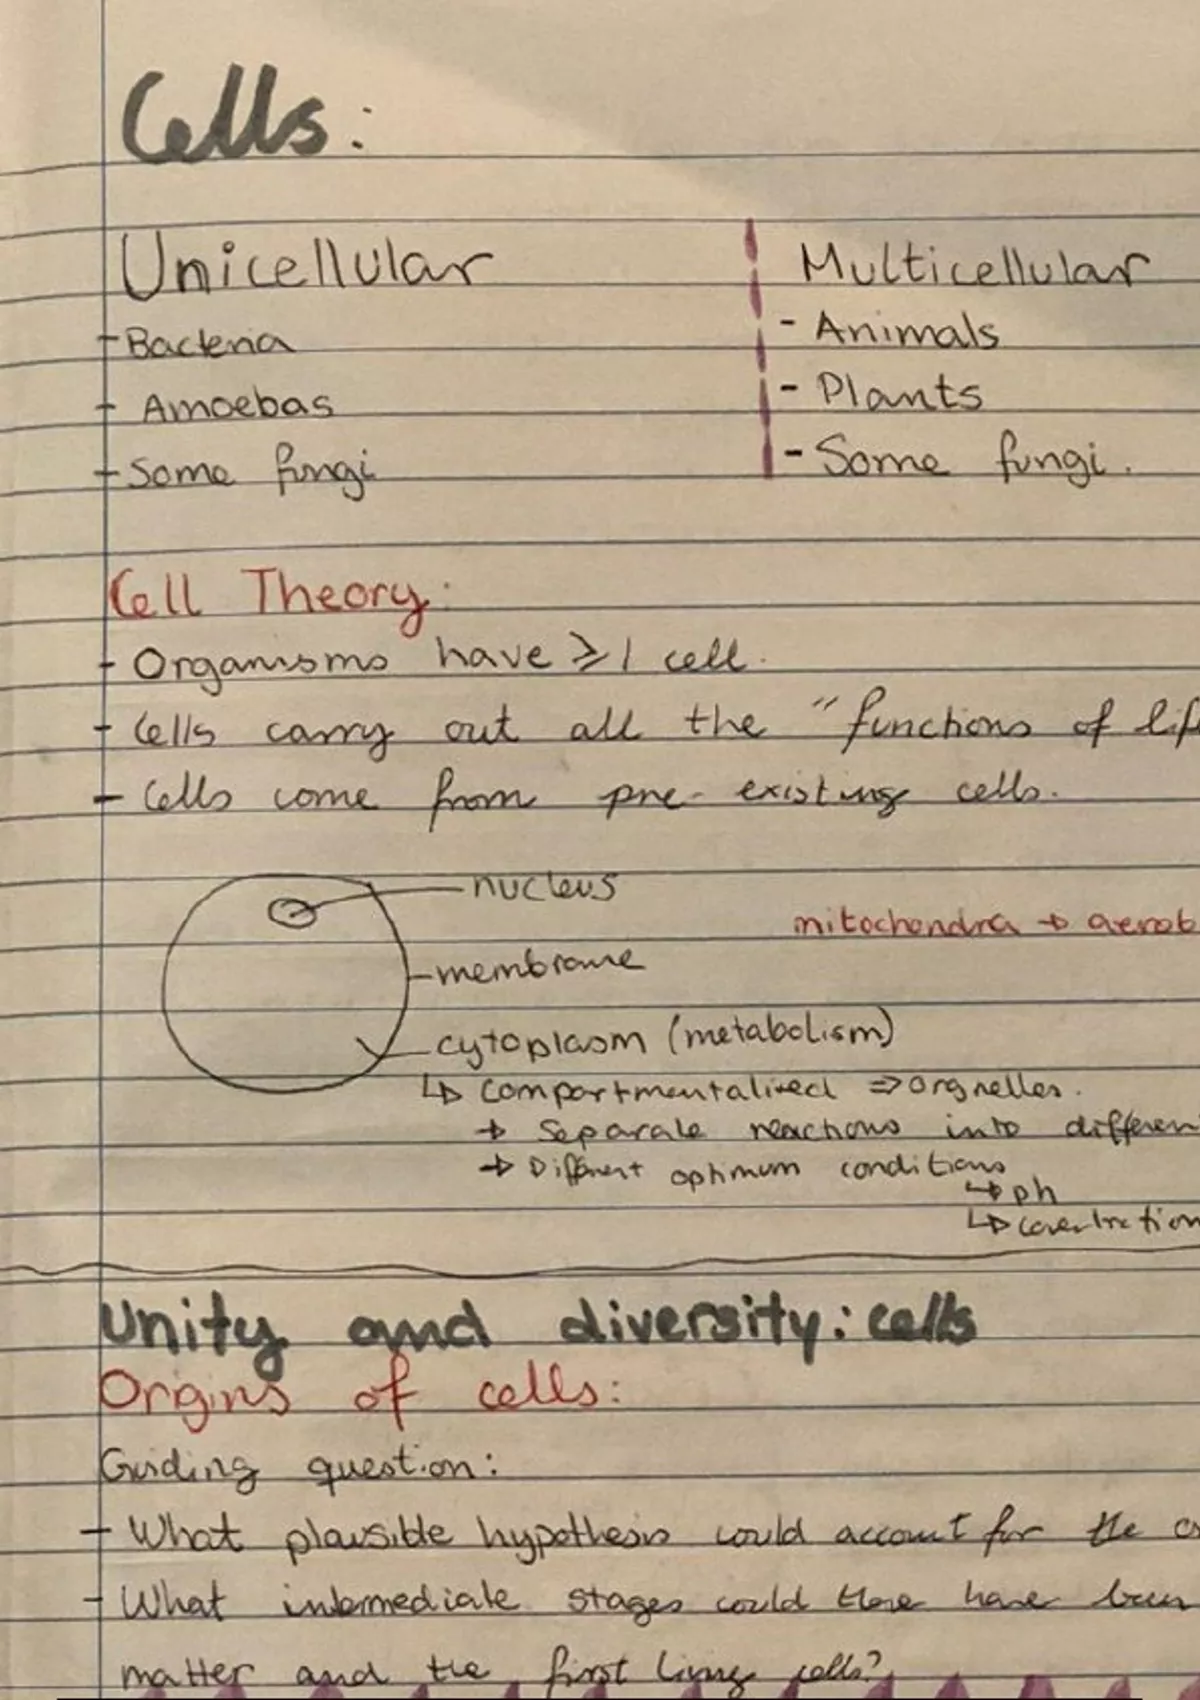 Cells:
Unicellular
- Bacteria
- Amoebas
- Some fungi
Multicellular
- Animals
- Plants
- Some fungi.
Cell Theory:
- Organisms have ⩾ 1 cell.
- Cells carry out all the "functions of lif
- Cells come from pre-existing cells.
nucleus
mitochondra → aerob
membrane
cytoplasm (metabolism)
↳ Compartmentalised ⇒ orgnelles.
→ Separate reactions into differen
→ Different optimum conditions
↳ ph
↳
Unity and diversity: cells
Orgins of cells:
Guiding question:
- What plausible hypothesis could account for the
- What intermediate stages could there have been
matter and the first living cells?